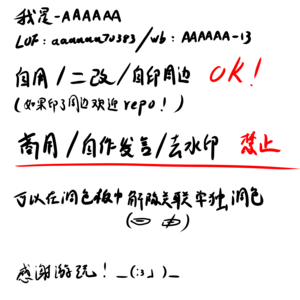 我是-AAAAAA
LOF：aaaaaa70383/wb：AAAAAA-13
自用/二改/自印周边 OK！
(如果印了周边欢迎repo！)
商用/自作发言/去水印 禁止
可以在调色板中解除关联单独调色
感谢游玩！_(:3」)_